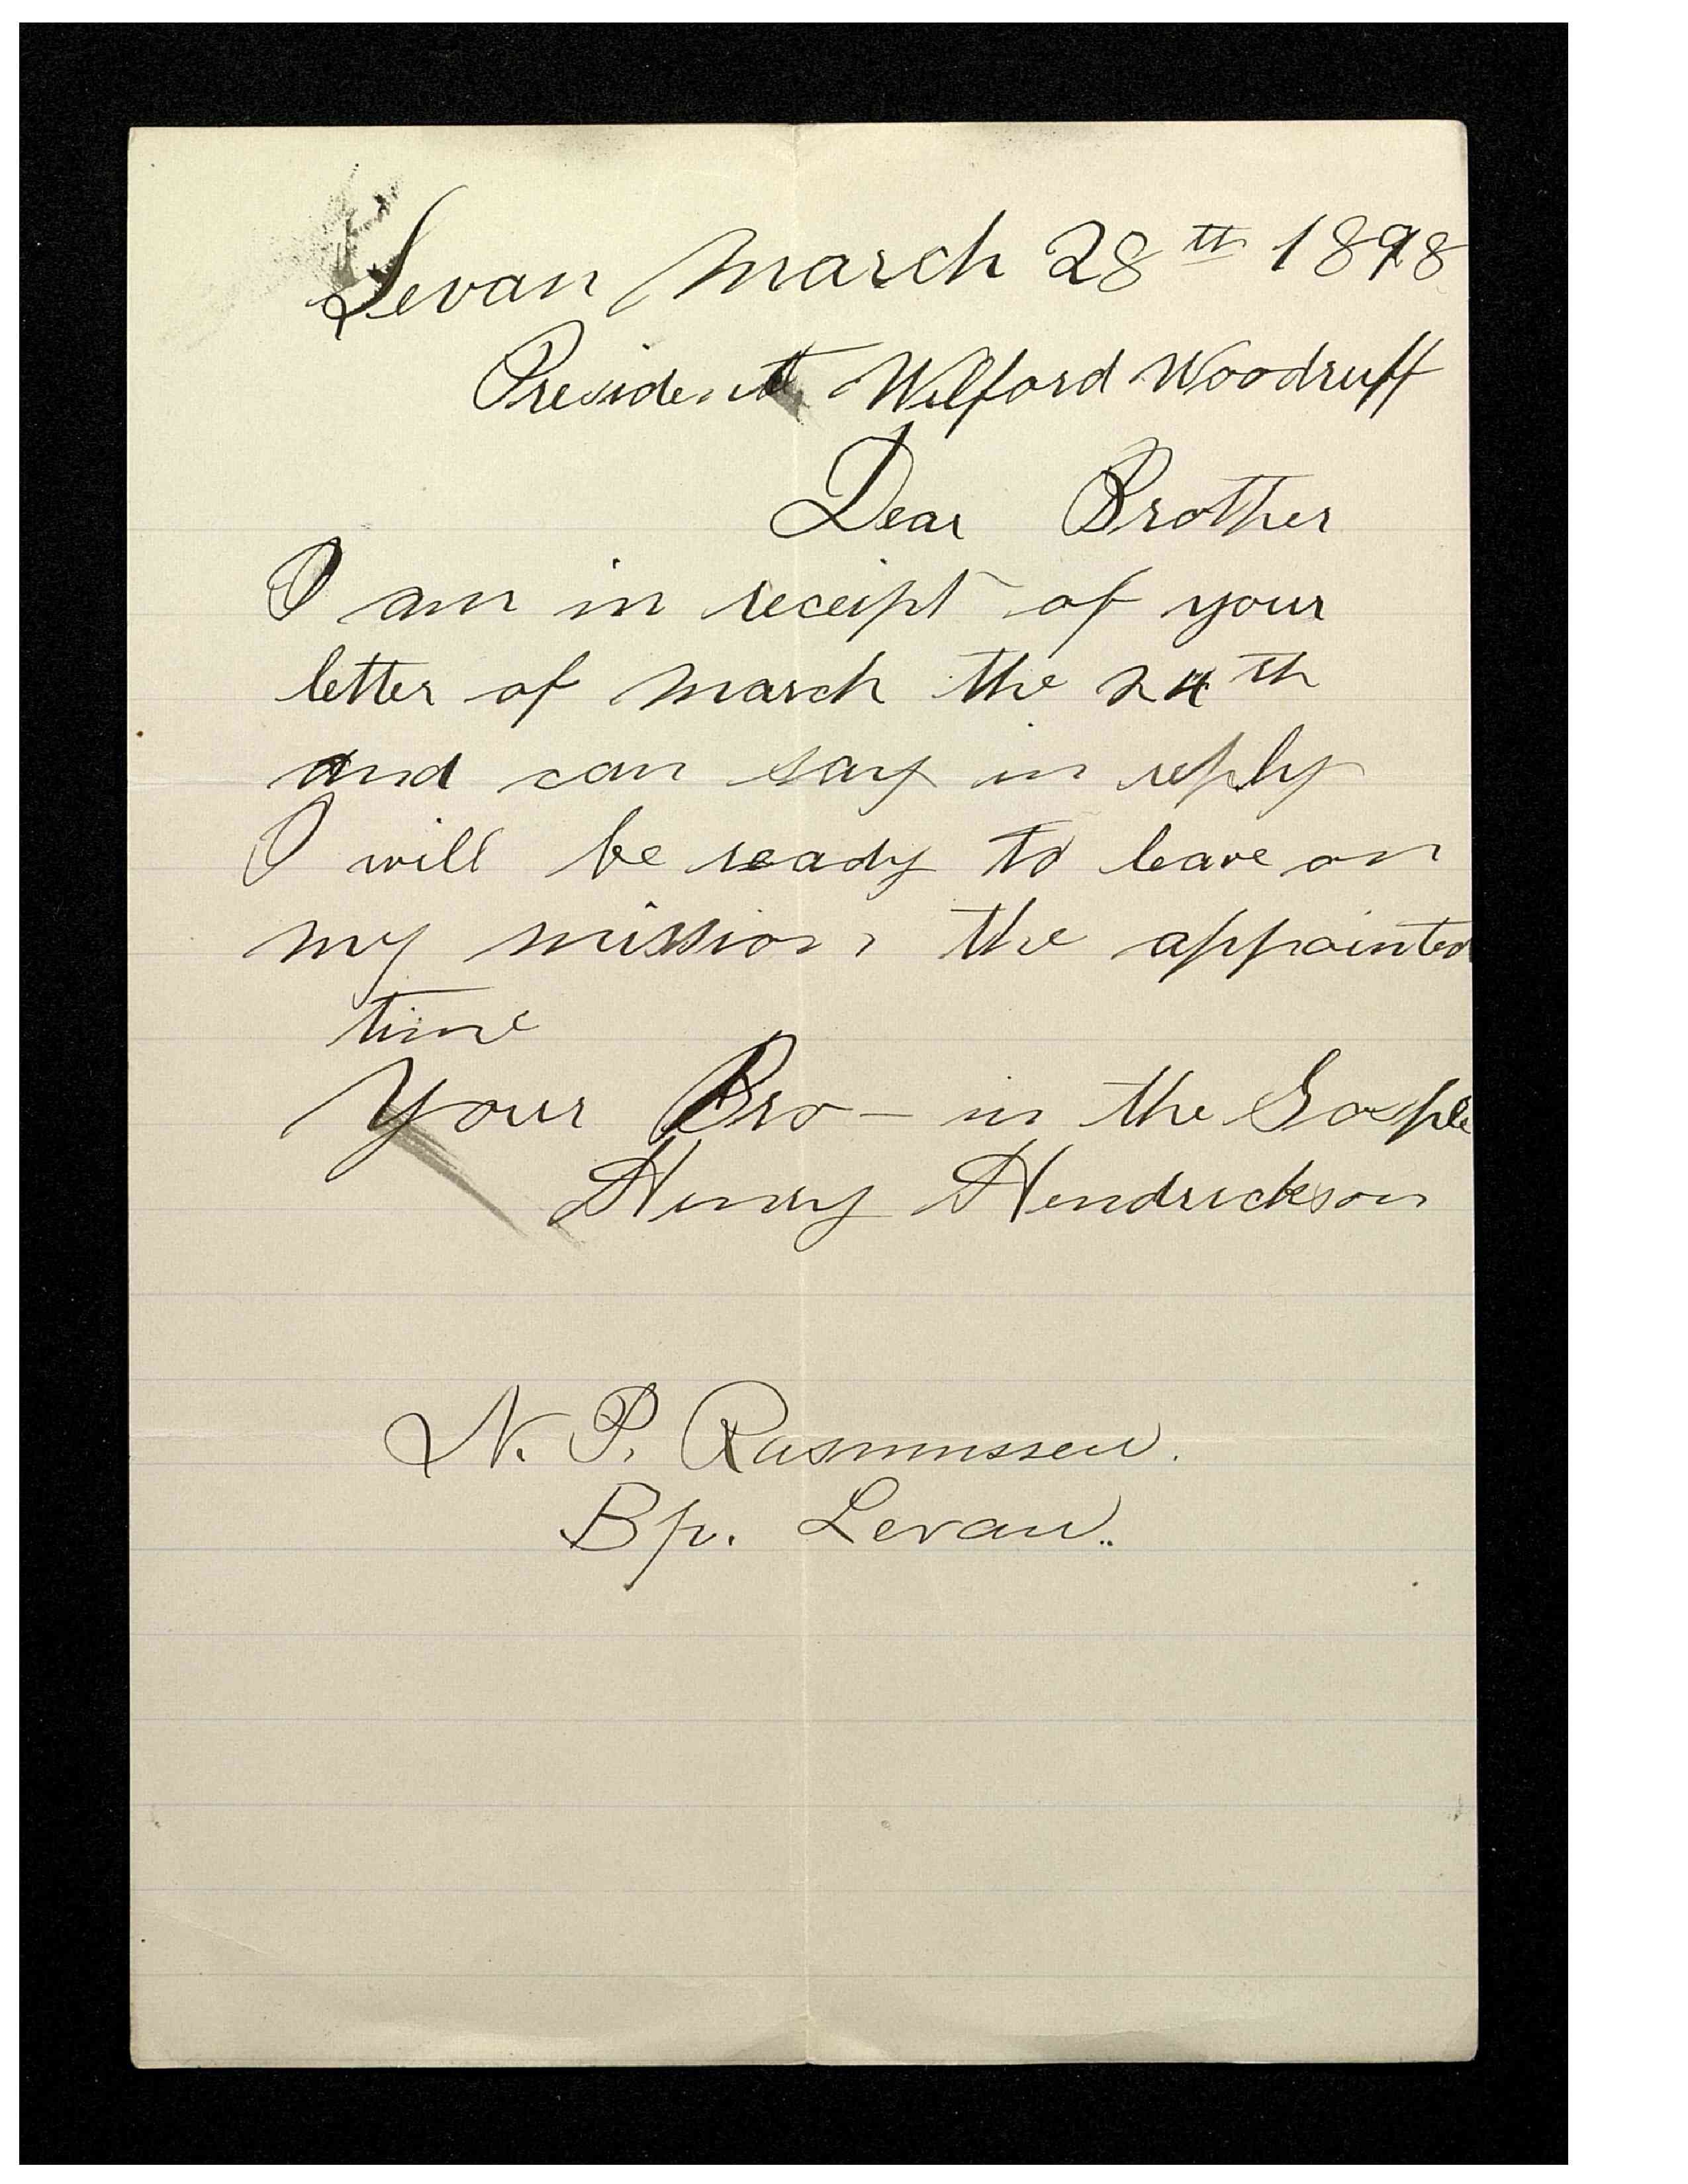 Levan March 28th 1898
President Wilford Woodruff
Dear Brother
I am in receipt of your
letter of march the 24th
and can say in reply
I will be ready to leave on
my mission, the appointed
time
Your Bro- in the Gosple
Henry Hendrickson
N. P. Rasmussen.
Bp. Levan.